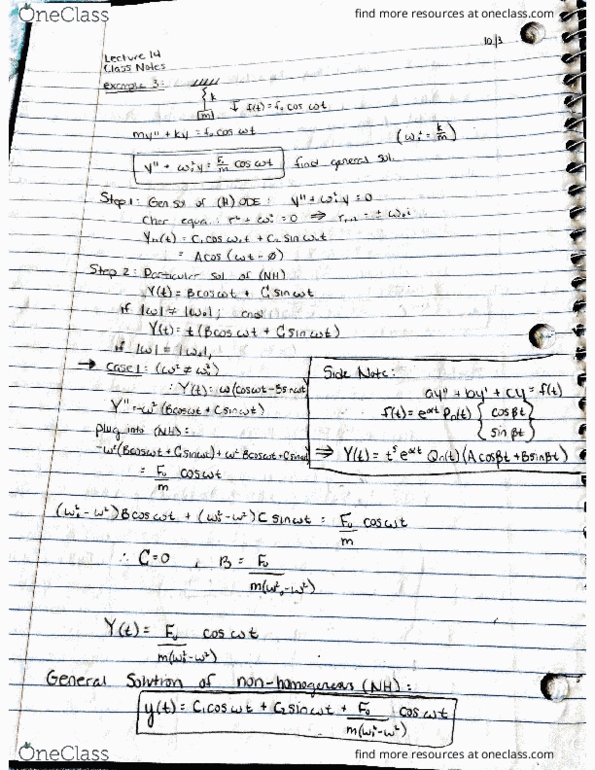 OneClass
find more resources at oneclass.com
10/3
Lecture 14
Class Notes
example 3:
k
m ↓ f(t) = f₀ cos ωt
my'' + ky = f₀ cos ωt (ω₀² = k/m)
y'' + ω₀² y = F₀/m cos ωt find general sol.
Step 1: Gen sol of (H) ODE: y'' + ω₀² y = 0
Char equa: r² + ω₀² = 0 ⇒ r₁,₂ = ± ω₀i
(t) = C₁ cos ω₀t + C₂ sin ω₀t
= A cos (ωt - ø)
Step 2: Particular sol of (NH)
Y(t) = B cos ωt + C sin ωt
if |ω| ≠ |ω₀|; and
Y(t) = t (B cos ωt + C sin ωt)
if |ω| = |ω₀|,
→ case 1: (ω² ≠ ω₀²)
: Y(t) = ω(C cos ωt - B sin ωt)
Y'' = -ω² (B cos ωt + C sin ωt)
plug into (NH):
-ω²(B cos ωt + C sin ωt) + ω² B cos ωt + C sin ωt
= F₀/m cos ωt
Side Note:
ay'' + by' + cy = f(t)
f(t) = e^αt Pn(t) { cos βt
sin βt }
⇒ Y(t) = t^s e^αt Qn(t) (A cos βt + B sin βt)
(ω₀² - ω²) B cos ωt + (ω₀² - ω²) C sin ωt = F₀/m cos ωt
∴ C = 0 , B = F₀/m(ω₀² - ω²)
Y(t) = F₀/m(ω₀² - ω²) cos ωt
General Solution of non-homogeneous (NH):
y(t) = C₁ cos ωt + C₂ sin ωt + F₀/m(ω₀² - ω²) cos ωt
OneClass
find more resources at oneclass.com